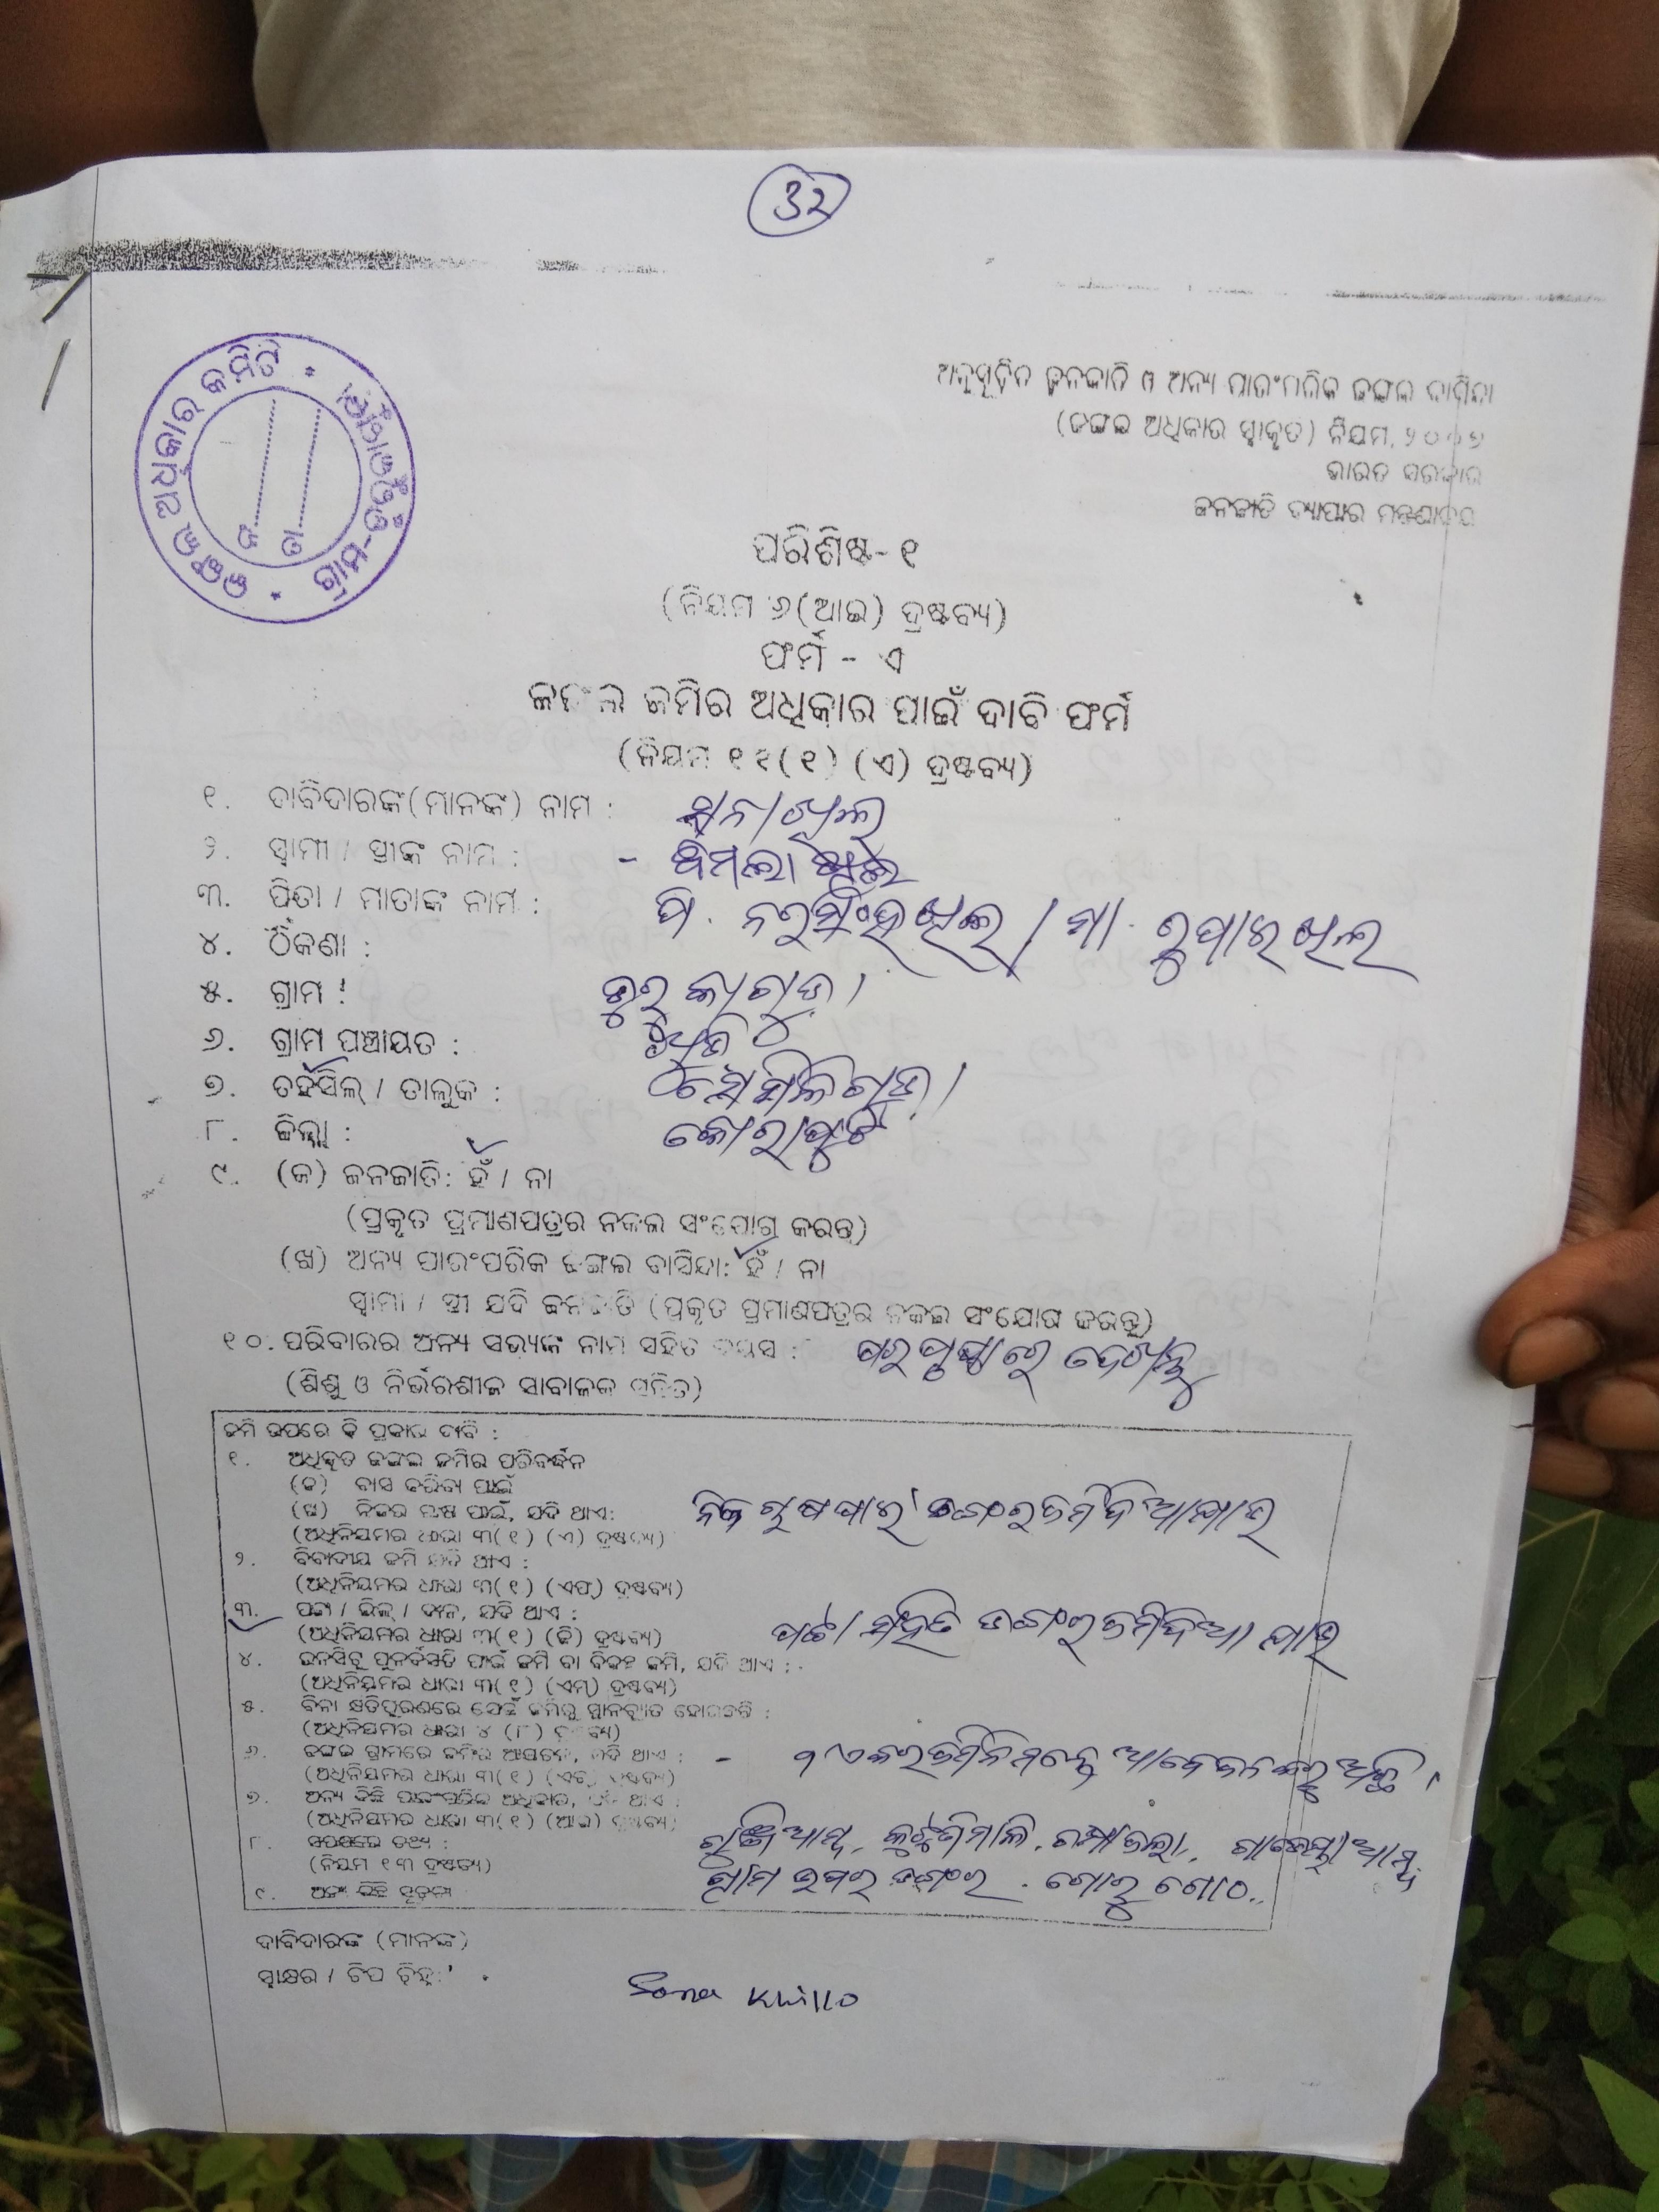 ୩୨
ଜଙ୍ଗଲ ଅଧିକାର କମିଟି
ଗ୍ରାମ-
ନ
ତା
ଅନୁସୂଚିତ ଜନଜାତି ଓ ଅନ୍ୟ ପାରଂପରିକ ଜଙ୍ଗଲ ବାସିନ୍ଦା
(ଜଙ୍ଗଲ ଅଧିକାର ସ୍ୱୀକୃତ) ନିୟମ, ୨୦୦୭
ଭାରତ ସରକାର
ଜନଜାତି ବ୍ୟାପାର ମନ୍ତ୍ରଣାଳୟ
ପରିଶିଷ୍ଟ - ୧
(ନିୟମ ୬(ଆଇ) ଦ୍ରଷ୍ଟବ୍ୟ)
ଫର୍ମ - ଏ
ଜଙ୍ଗଲ ଜମିର ଅଧିକାର ପାଇଁ ଦାବି ଫର୍ମ
(ନିୟମ ୧୧(୧) (ଏ) ଦ୍ରଷ୍ଟବ୍ୟ)
୧. ଦାବିଦାରଙ୍କ(ମାନଙ୍କ) ନାମ : ସନା ଖିଲ
୨. ସ୍ୱାମୀ / ସ୍ତ୍ରୀଙ୍କ ନାମ : - ବିମଲା ଖିଲ
୩. ପିତା / ମାତାଙ୍କ ନାମ : ପି. ନରସିଂହ ଖିଲ / ମା.
୪. ଠିକଣା :
୫. ଗ୍ରାମ :
୬. ଗ୍ରାମ ପଞ୍ଚାୟତ :
୭. ତହସିଲ୍ / ତାଲୁକ : ସେମିଳିଗୁଡା
୮. ଜିଲ୍ଲା : କୋରାପୁଟ
୯. (କ) ଜନଜାତି: ହଁ / ନା
(ପ୍ରକୃତ ପ୍ରମାଣପତ୍ରର ନକଲ ସଂଯୋଗ କରନ୍ତୁ)
(ଖ) ଅନ୍ୟ ପାରଂପରିକ ଜଙ୍ଗଲ ବାସିନ୍ଦା: ହଁ / ନା
ସ୍ୱାମୀ / ସ୍ତ୍ରୀ ଯଦି ଜନଜାତି (ପ୍ରକୃତ ପ୍ରମାଣପତ୍ରର ନକଲ ସଂଯୋଗ କରନ୍ତୁ)
୧୦. ପରିବାରର ଅନ୍ୟ ସଭ୍ୟଙ୍କ ନାମ ସହିତ ବୟସ : ପର ପୃଷ୍ଠାରେ ଦେଖନ୍ତୁ
(ଶିଶୁ ଓ ନିର୍ଭରଶୀଳ ସାବାଳକ ସହିତ)
ଜମି ଉପରେ କି ପ୍ରକାର ଦାବି :
୧. ଅଧିକୃତ ଜଙ୍ଗଲ ଜମିର ପରିବର୍ଦ୍ଧନ
(କ) ବାସ କରିବା ପାଇଁ
(ଖ) ନିଜର ଚାଷ ପାଇଁ, ଯଦି ଥାଏ: ନିଜ ଚାଷ ପାଇଁ ଡଙ୍ଗର ଜମି ଦିଆଯାଉ
(ଅଧିନିୟମର ଧାରା ୩(୧) (ଏ) ଦ୍ରଷ୍ଟବ୍ୟ)
୨. ବିବାଦୀୟ ଜମି ଯଦି ଥାଏ :
(ଅଧିନିୟମର ଧାରା ୩(୧) (ଏଫ୍) ଦ୍ରଷ୍ଟବ୍ୟ)
୩. ପଟ୍ଟା / ଲିଜ୍ / ଦାନ, ଯଦି ଥାଏ :
(ଅଧିନିୟମର ଧାରା ୩(୧) (ଜି) ଦ୍ରଷ୍ଟବ୍ୟ) ପଟ୍ଟା ସହିତ ଡଙ୍ଗର ଜମି ଦିଆ ଯାଉ
୪. ଇନସିଟୁ ପୁନର୍ବସତି ପାଇଁ ଜମି ବା ବିକଳ୍ପ ଜମି, ଯଦି ଥାଏ :
(ଅଧିନିୟମର ଧାରା ୩(୧) (ଏମ୍) ଦ୍ରଷ୍ଟବ୍ୟ)
୫. ବିନା କ୍ଷତିପୂରଣରେ ଯେଉଁ ଜମିରୁ ସ୍ଥାନଚ୍ୟୁତ ହୋଇଛନ୍ତି :
(ଅଧିନିୟମର ଧାରା ୪ (୮) ଦ୍ରଷ୍ଟବ୍ୟ)
୬. ଜଙ୍ଗଲ ଗ୍ରାମରେ ଜମିର ଆୟତନ, ଯଦି ଥାଏ : -
(ଅଧିନିୟମର ଧାରା ୩(୧) (ଏଚ୍) ଦ୍ରଷ୍ଟବ୍ୟ)
୭. ଅନ୍ୟ କିଛି ପାରଂପରିକ ଅଧିକାର, ଯଦି ଥାଏ :
(ଅଧିନିୟମର ଧାରା ୩(୧) (ଆଇ) ଦ୍ରଷ୍ଟବ୍ୟ)
୮. ସପକ୍ଷରେ ତଥ୍ୟ :
(ନିୟମ ୧୩ ଦ୍ରଷ୍ଟବ୍ୟ)
୯. ଅନ୍ୟ କିଛି ସୂଚନା
ଦାବିଦାରଙ୍କ (ମାନଙ୍କ)
ସ୍ୱାକ୍ଷର / ଟିପ ଚିହ୍ନ
Sona Khillo